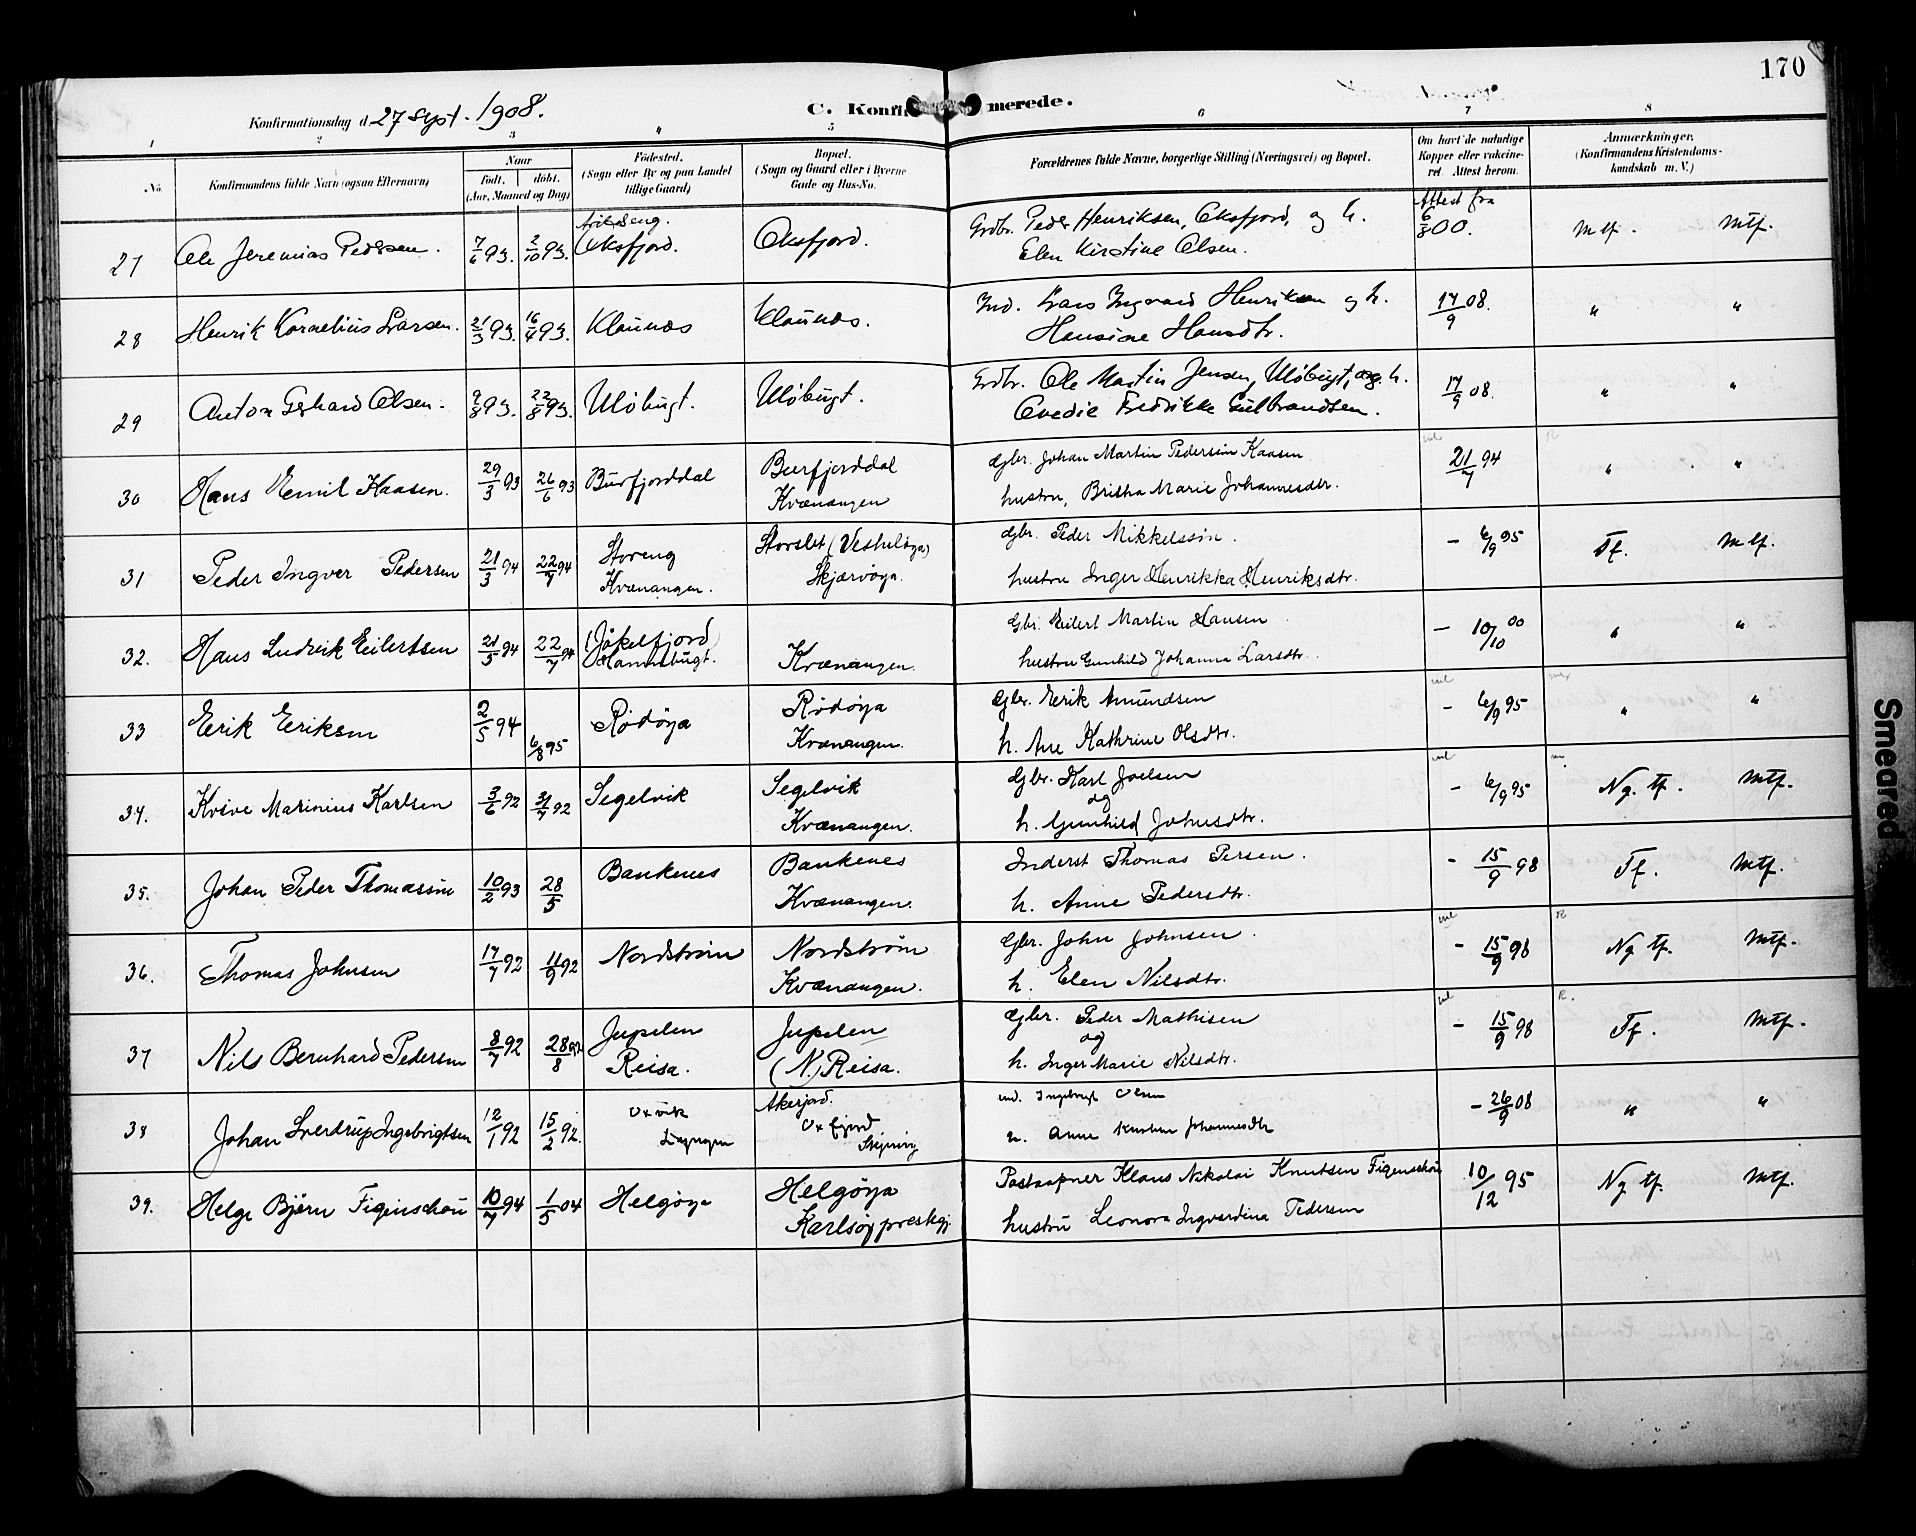 170
Konfirmationsdag d. 27 sept. 1908.
C. Konfir merede.
1 2 3 4 5 6 7 8
No.
Konfirmandens fulde Navn (ogsaa Efternavn)
Naar
Født. døbt.
(Aar, Maaned og Dag)
Fødested.
(Sogn eller By og paa Landet
tillige Gaard)
Bopæl.
(Sogn og Gaard eller i Byerne
Gade og Hus-No.
Forældrenes fulde Navne, borgerlige Stilling (Næringsvei) og Bopæl.
Om havt de naturlige
Kopper eller vakcine-
ret. Attest herom.
Anmærkninger.
(Konfirmandens Kristendoms-
kundskab m. V.)
27 Ole Jeremias Pedersen. 7/6 93. 2/10 93. Oksfjord. Oksfjord. Grdbr. Peder Henriksen, Oksfjord, og h.
Elen Kirstine Olsen. Attest fra
6/8 00. mtf. mtf.
28 Henrik Kornelius Larsen. 21/3 93. 16/4 93. Klaunæs Klaunæs. Ind. Lars Ingvard Henriksen og h.
Hansine Hansdtr. 17/9 08. " "
29 Anton Gerhard Olsen. 9/8 93. 22/8 93. Uløbugt. Uløbugt. Grdbr. Ole Martin Jensen, Uløbugt, og h.
Ovedie Fredrikke Gulbrandsen. 17/9 08. " "
30 Hans Emil Kaasen. 29/3 93 26/6 93 Burfjorddal Burfjorddal
Kvænangen Gbr. Johan Martin Pedersen Kaasen
hustru, Britha Marie Johannesdtr. 21/7 94 " "
31 Peder Ingver Pedersen 21/3 94 22/7 94 Storeng
Kvænangen. Storslet (Vesteløya)
Skjærvøya. Gbr. Peder Mikkelssøn.
hustru Inger Henrikka Henriksdtr. - 6/9 95 Tf. mtf.
32. Hans Ludvik Eilertsen 21/5 94 22/7 94 (Jøkelfjord)
Hamnbugt. Kvænangen. Gbr. Eilert Martin Hansen
hustru Gunhild Johanna Larsdtr. - 10/10 00 " "
33 Erik Eriksen 2/5 94 6/8 95 Rødøya Rødøya
Kvænangen. Gbr. Erik Amundsen
h. Ane Kathrine Olsdtr. - 6/9 95 " "
34. Marinius Karlsen 3/6 92 31/7 92 Segelvik Segelvik
Kvænangen. Gbr. Karl Joelsen
og
h. Gunhild Johnsdtr. - 6/9 95 Ng. tf. mtf.
35. Johan Peder Thomassen 10/2 93 28/5 Bankenes Bankenes
Kvænangen. Inderst Thomas Persen.
h. Anne Pedersdtr. - 15/9 98 Tf. mtf.
36. Thomas Johnsen 17/7 92 11/9 92 Nordstrøm Nordstrøm
Kvænangen. Gbr. John Johnsen.
h. Elen Nilsdtr. - 15/9 98 Ng tf. mtf.
37 Nils Bernhard Pedersen 8/7 92 28/8 92 Jupelen
Reisa. Jupelen
(N.) Reisa. Gbr. Peder Mathisen
og
h. Inger Marie Nilsdtr. - 15/9 98 Tf. mtf.
38 Johan Sverdrup Ingebrigtsen 12/1 92 15/2 92. Oxvik
Oxfjord
ind. Ingebrigt Olsen
h. Anne Johannesdtr - 26/9 08 " "
39. Helge Bjørn Figenschou 10/7 94 1/5 04 Helgøya Helgøya
Karlsøy prestegj. Postaapner Klaus Nikolai Knutsen Figenschou
hustru Leonora Ingvardina Pedersen 10/12 95 Ng tf. mtf.
Smeared